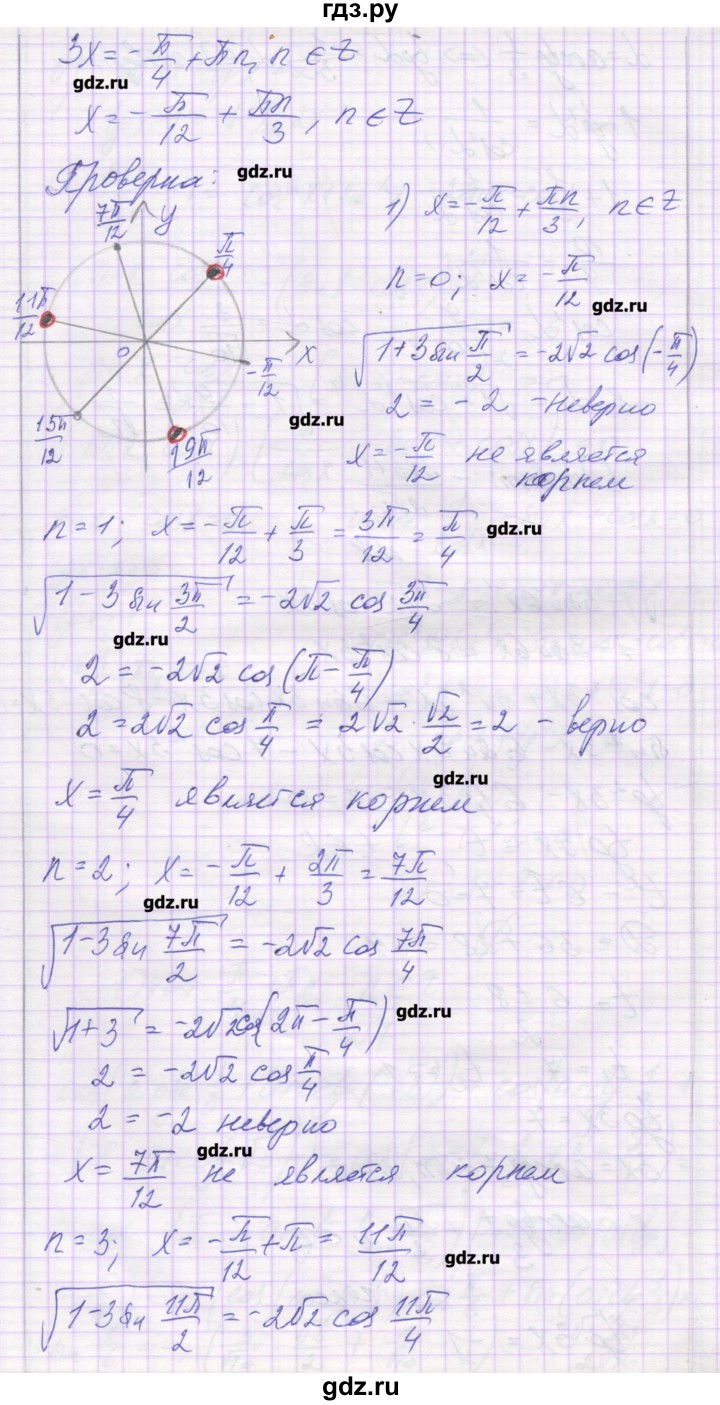 гдз.ру
3x = -π/4 + πn, n ∈ Z
gdz.ru
x = -π/12 + πn/3, n ∈ Z
Проверка:
gdz.ru
7π/12
y
π/4
11π/12
0
x
-π/12
15π/12
19π/12
gdz.ru
1) x = -π/12 + πn/3, n ∈ Z
n = 0; x = -π/12
gdz.ru
√(1+3 sin π/2) = -2√2 cos(-π/4)
2 = -2 - неверно
x = -π/12 не является
корнем
n = 1; x = -π/12 + π/3 = 3π/12 = π/4
gdz.ru
√(1-3 sin 3π/2) = -2√2 cos 3π/4
gdz.ru
2 = -2√2 cos(π - π/4)
2 = 2√2 cos π/4 = 2√2 · √2/2 = 2 - верно
gdz.ru
x = π/4 является корнем
n = 2; x = -π/12 + 2π/3 = 7π/12
gdz.ru
√(1-3 sin 7π/2) = -2√2 cos 7π/4
√(1+3) = -2√2 cos(2π - π/4)
gdz.ru
2 = -2√2 cos π/4
2 = -2 неверно
gdz.ru
x = 7π/12 не является корнем
n = 3; x = -π/12 + π = 11π/12
gdz.ru
√(1-3 sin 11π/2) = -2√2 cos 11π/4
gdz.ru